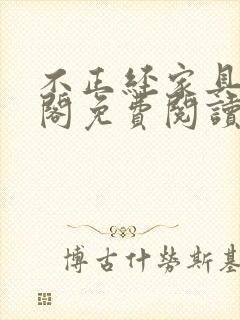 不正經家具
閣免費閱讀
博古什勞斯基